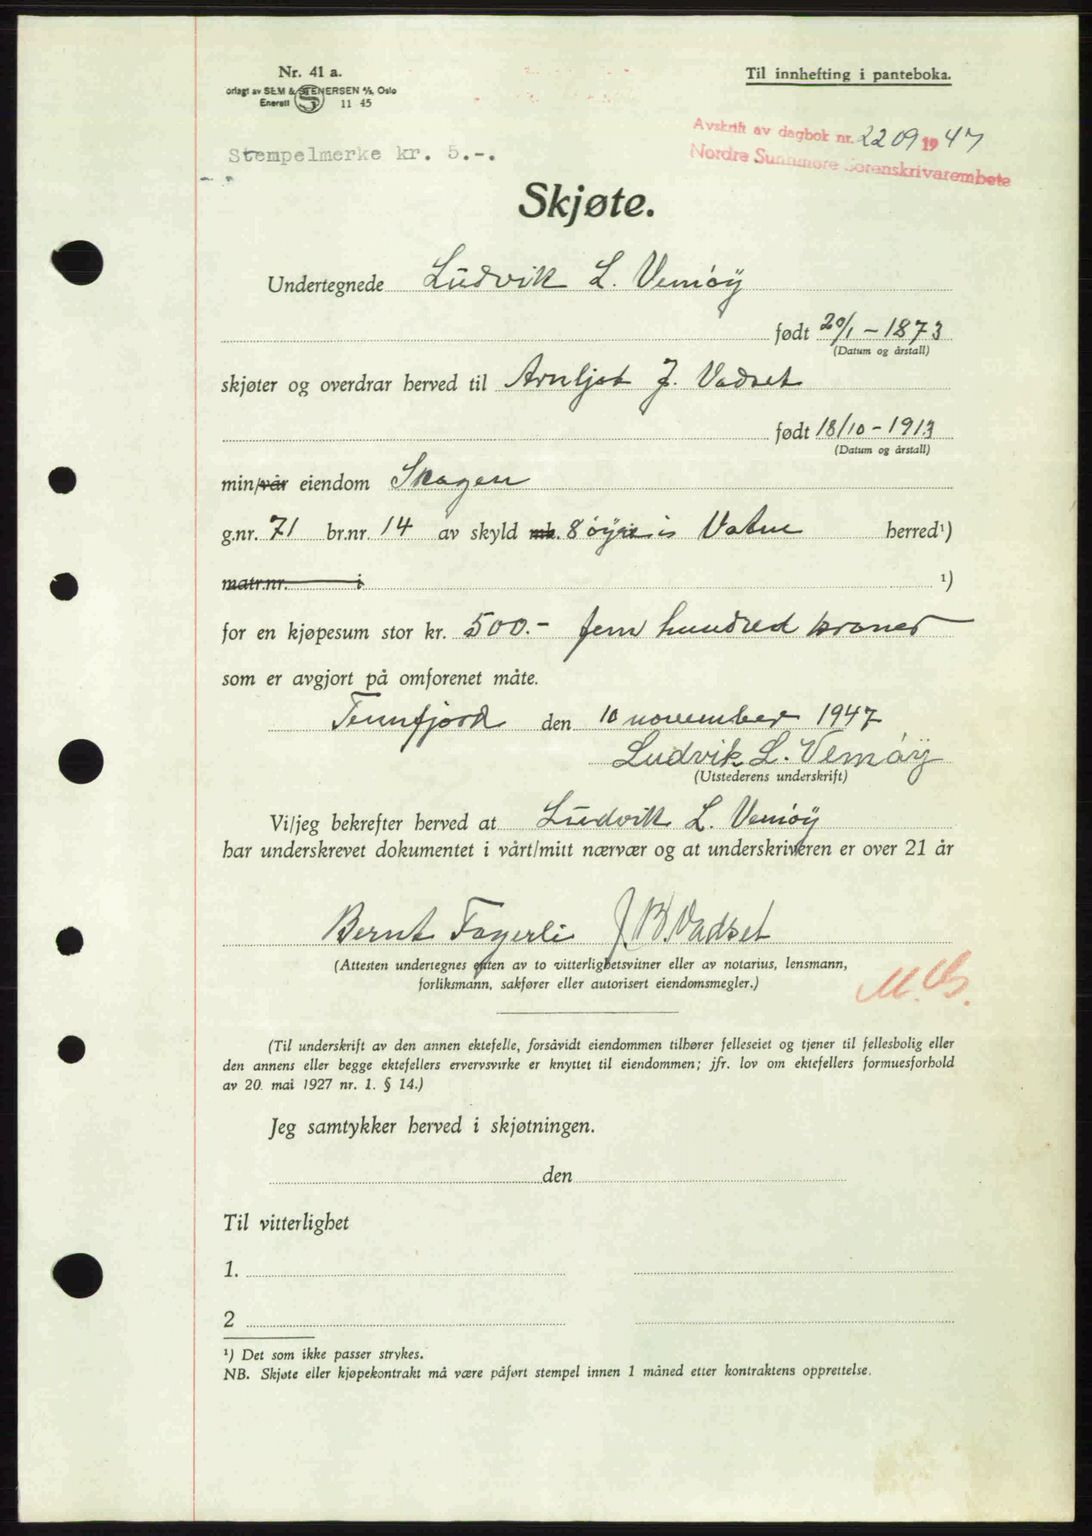 Nr. 41 a.
Til innhefting i panteboka.
orlagt av SEM & STENERSEN A/S, Oslo
Enerett 11 45
Avskrift av dagbok nr. 2209 1947
Nordre Sunnmøre Sorenskrivarembete
Stempelmerke kr. 5.-.
Skjøte.
Undertegnede Ludvik L. Vemøy
født 20/1 - 1873
(Datum og årstall)
skjøter og overdrar herved til Arnljot J. Vadset
født 18/10 - 1913
(Datum og årstall)
min/vår eiendom Skagen
g.nr. 71 br.nr. 14 av skyld mk. 8 øyre i Vatne herred¹)
matr.nr. i ¹)
for en kjøpesum stor kr. 500.- fem hundred kroner
som er avgjort på omforenet måte.
Tennfjord den 10 november 1947
Ludvik L. Vemøy
(Utstederens underskrift)
Vi/jeg bekrefter herved at Ludvik L. Vemøy
har underskrevet dokumentet i vårt/mitt nærvær og at underskriveren er over 21 år
Bernt Fagerli J. B. Vadset
(Attesten undertegnes enten av to vitterlighetsvitner eller av notarius, lensmann,
forliksmann, sakfører eller autorisert eiendomsmegler.)
(Til underskrift av den annen ektefelle, forsåvidt eiendommen tilhører felleseiet og tjener til fellesbolig eller
den annens eller begge ektefellers ervervsvirke er knyttet til eiendommen; jfr. lov om ektefellers formuesforhold
av 20. mai 1927 nr. 1. § 14.)
Jeg samtykker herved i skjøtningen.
den
Til vitterlighet
1.
2
¹) Det som ikke passer strykes.
NB. Skjøte eller kjøpekontrakt må være påført stempel innen 1 måned etter kontraktens opprettelse.